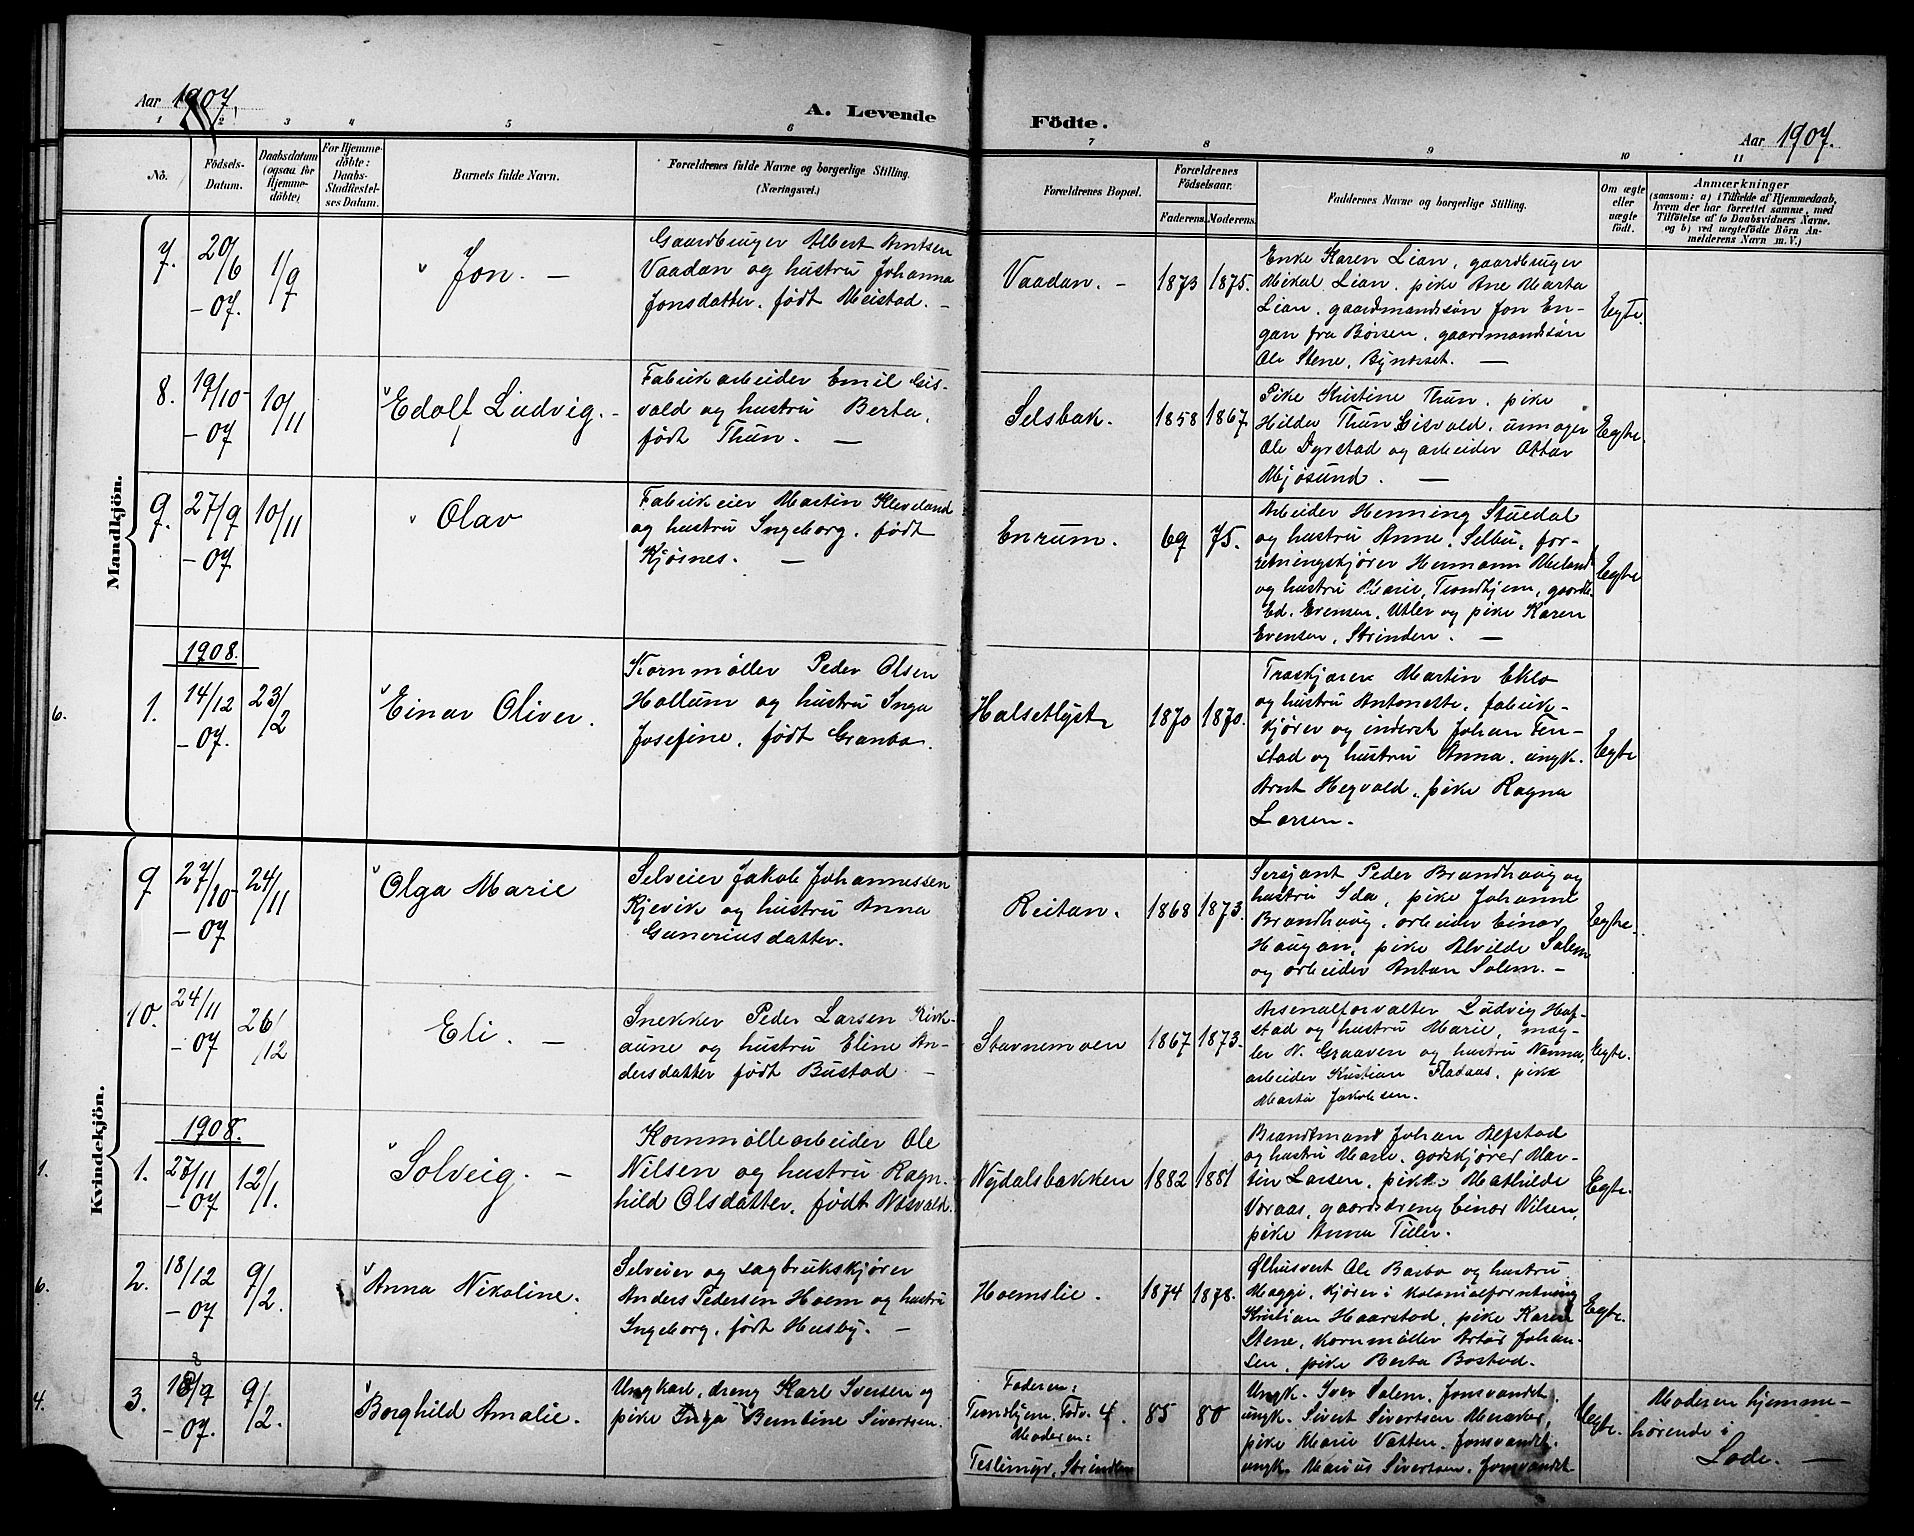 Aar 1907. A. Levende Födte. Aar 1907.
1 2 3 4 5 6 7 8 9 10 11
No. Födsels-Datum. Daabsdatum (ogsaa for Hjemmedöbte) For Hjemmedöbte: Daabs-Stadfæstelses Datum. Barnets fulde Navn. Forældrenes fulde Navne og borgerlige Stilling. (Næringsvei.) Forældrenes Bopæl. Forældrenes Födselsaar. Faderens. Moderens. Faddernes Navne og borgerlige Stilling. Om ægte eller uægte födt. Anmærkninger
(saasom: a) i Tilfælde af Hjemmedaab, hvem der har forrettet samme, med Tilföielse af to Daabsvidners Navne. og b) ved uægtefödte Börn Anmelderens Navn m. V.)
Mandkjön.
7. 20/6 -07. 1/9 Jon. —
Gaardbruger Albert Arntsen
Vaadan og hustru Johanna
Jonsdatter, født Meistad. —
Vaadan. — 1873 1875.
Enke Karen Lian, gaardbruger
Mikal Lian, pike Ane Marta
Lian, gaardmandssøn Jon En-
gan fra Børsen, gaardmandssøn
Ole Stene, Bynesset. —
Egte.
8. 19/10 -07 10/11 Edolf Ludvig. —
Fabrikarbeider Emil Gis-
vold og hustru Berta,
født Thun. —
Selsbak. 1858 1867.
Pike Kristine Thun, pike
Hilda Thun Gisvold, urmager
Ole Dyrstad og arbeider Ottar
Mjøsund. —
Egte.
9. 27/9 -07 10/11 Olav
Fabrikeier Martin Kleveland
og hustru Ingeborg, født
Kjøsnes. —
Enrum. 69 75.
Arbeider Henning Stuedal
og hustru Anne, Selbu, for-
retningskjører Hermann Meland
og hustru Marie, Trondhjem, gaardb.
Ed. Evensen, Utler og pike Karen
Evensen, Strinden. —
Egte
1908.
6. 1. 14/12 -07. 23/2 Einar Oliver.
Kornmøller Peder Olsen
Hallum og hustru Inga
Josefine, født Granbo.
Halsetlyst 1870 1870.
Martin Eklo
og hustru Antonette, fabrik-
kjører og inderst Johan Ten-
stad og hustru Anna, ungk.
Arnt Hegvold, pike Ragna
Larsen.
Egte
Kvindekjön.
9 27/10 -07 24/11 Olga Marie
Selveier Jakob Johannessen
Kjevik og hustru Anna
Guneriusdatter.
Reitan. 1868 1873.
Sersjant Peder Brandhaug og
hustru Ida, pike Johanne
Brandhaug, arbeider Einar
Haugan, pike Alvilde Solem
og arbeider Anton Solem. —
Egte.
10. 24/11 -07 26/12 Eli. —
Snekker Peder Larsen Kirk-
aune og hustru Eline An-
dersdatter født Bustad —
Stavnemoen 1867 1873.
Arsenalforvalter Ludvig Haf-
stad og hustru Marie, mæg-
ler N. Graaven og hustru Nanna,
arbeider Kristian Fladaas, pike
Marta Jakobsen.
Egte.
1908.
1. 1. 27/11 -07 12/1. Solveig. —
Kornmøllearbeider Ole
Nilsen og hustru Ragn-
hild Olsdatter, født Næsvold.
Nydalsbakken 1882 1881
Brandtmand Johan Alfstad
og hustru Marie, godskjører Mar-
tin Larsen, pike Mathilde
Voraas, gaardsdreng Einar Nilsen,
pike Anna Tiller.
Egte.
6. 2. 18/12 -07 9/2. Anna Nikoline.
Selveier og sagbrukskjører
Anders Pedersen Hoem og hustru
Ingeborg, født Husby. —
Hoemslie. 1874 1878.
Ølhusvert Ole Barbo og hustru
Maggi, kjører i kolonialforretning
Kristian Haarstad, pike Karen
Stene, kornmøller Artur Johan-
sen, pike Berta Bostad.
Egte.
4. 3. 18/9 -07. 9/2. Borghild Amalie.
Ungkarl, dreng Karl Iversen og
pike Inga Bendine Sivertsen.
Faderen:
Trondhjem, 4.
Moderen:
Teslimyr, Strinden
85 80
Ungk. Iver Solem, Jonsvandet,
ungk. Sivert Sivertsen Meraker,
pike Marie Vatten, Jonsvandet.
ungk. Marius Sivertsen, Jonsvandet
Uegte.
Moderen hjemme-
hørende i
Lade. —